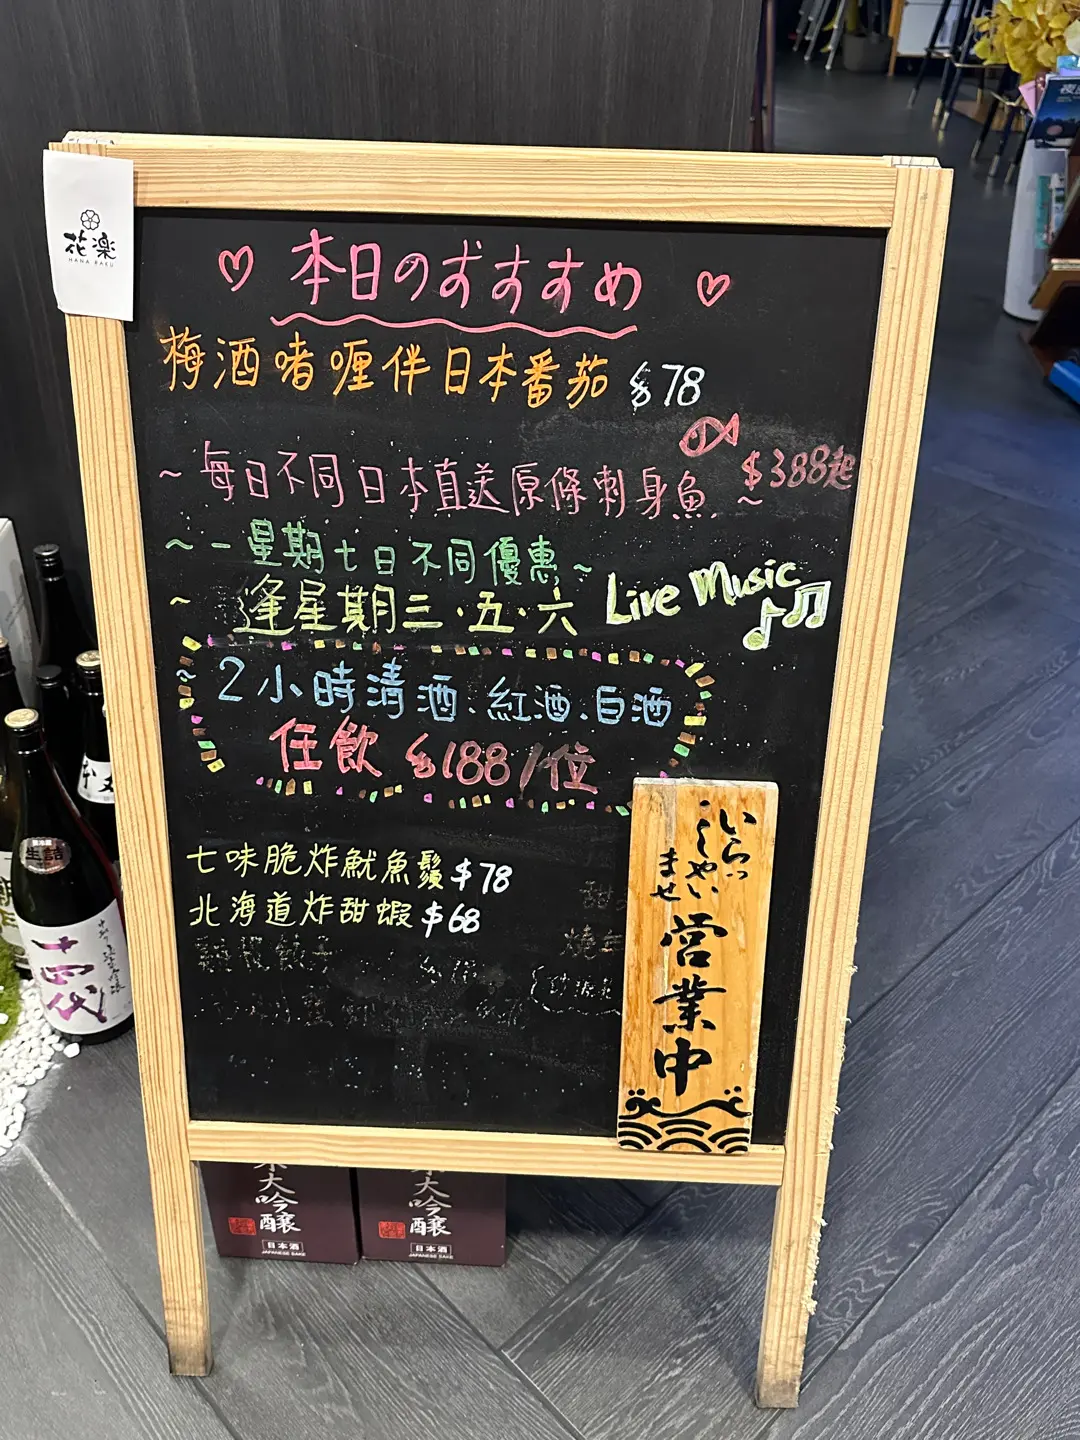 花楽
HANA RAKU
本日のおすすめ
梅酒啫喱伴日本番茄 $78
~每日不同日本直送原條刺身魚~ $388起
~一星期七日不同優惠~
~逢星期三·五·六 Live Music
2小時清酒.紅酒.白酒
任飲 $188/位
七味脆炸魷魚鬚 $78
北海道炸甜蝦 $68
いらっ
しゃい
ませ
営業中
生詰
十四代
大吟醸
日本酒
JAPANESE SAKE
大吟醸
日本酒
JAPANESE SAKE